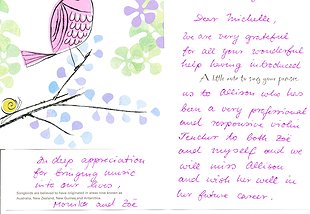 Dear Michelle,
we are very grateful
for all your wonderful
help having introduced
A little note to say your person
us to Allison who has
been a very professional
and responsive violin
Teacher to both Zoë
and myself and we
will miss Allison
and wish her well in
her future career.
In deep appreciation
for bringing music
into our lives,
Songbirds are believed to have originated in areas now known as
Australia, New Zealand, New Guinea and Antarctica.
Monika and Zoë